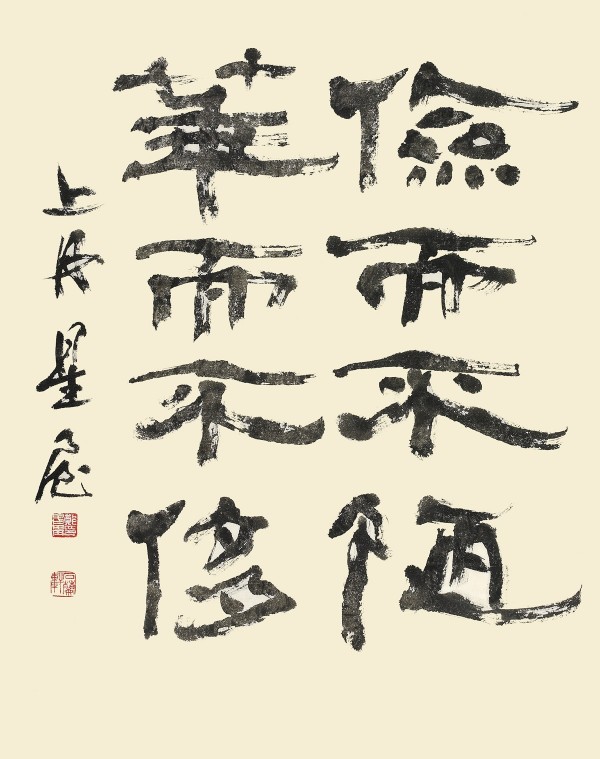 儉而不陋
華而不侈
上星